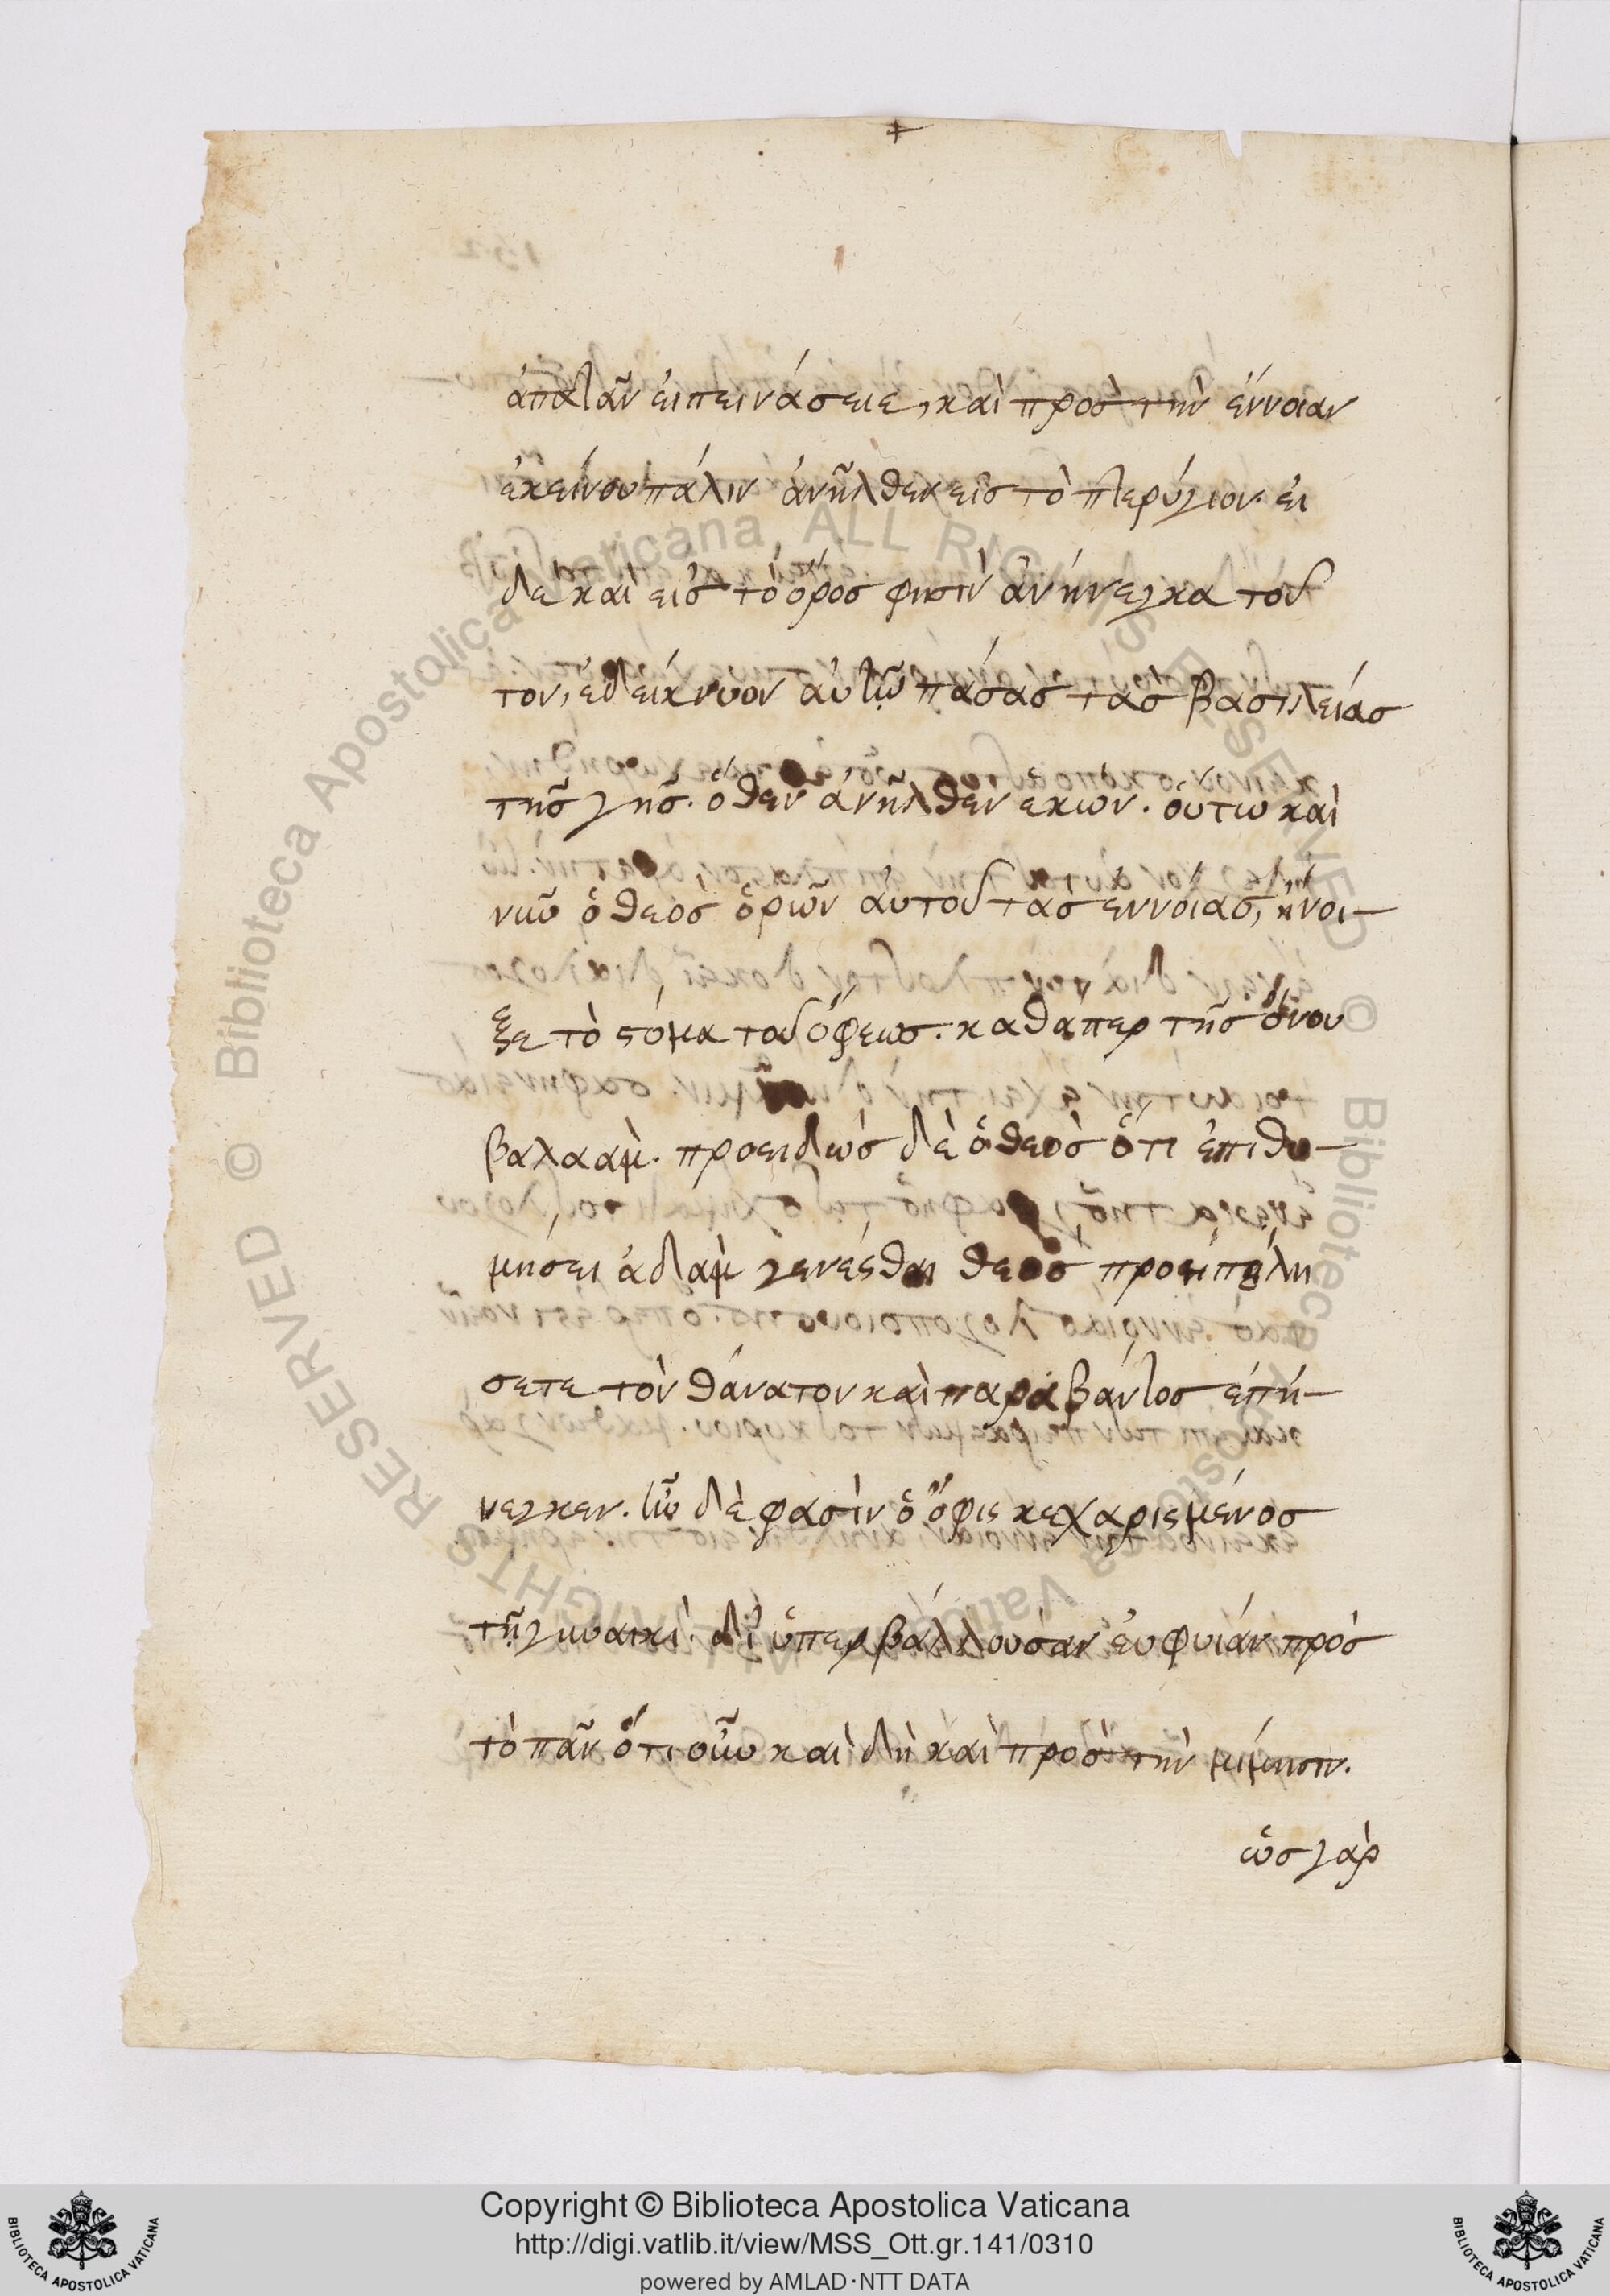 ἀπατᾶν εἰ πεινάσειε, καὶ πρὸς τὴν ἔννοιαν
ἐκείνου πάλιν ἀνῆλθεν εἰς τὸ πτερύγιον· εἰ
δὲ καὶ εἰς τὸ ὄρος φησὶν ἀνήνεγκα τοῦ
τον, ἐδείκνυον αὐτῷ πάσας τὰς βασιλείας
τῆς γῆς. ὅθεν ἀνῆλθεν ἑκών. οὕτω καὶ
νῦν ὁ θεὸς ὁρῶν αὐτοῦ τὰς ἐννοίας, ἤνοι-
ξε τὸ στόμα τοῦ ὄφεως. καθάπερ τῆς ὄνου
βαλαάμ. προειδὼς δὲ ὁ θεὸς ὅτι ἐπιθυ-
μήσει ἀδὰμ γενέσθαι θεὸς
σετε τὸν θάνατον καὶ παραβάντος ἐπή-
νεγκεν. ἦν δέ φασιν ὁ ὄφις κεχαρισμένος
τῇ γυναικὶ. δι' ὑπερβάλλουσαν εὐφυΐαν πρὸς
τὸ πᾶν ὁτιοῦν καὶ δὴ καὶ πρὸς τὴν μίμησιν.
ὡς γὰρ
Copyright © Biblioteca Apostolica Vaticana
http://digi.vatlib.it/view/MSS_Ott.gr.141/0310
powered by AMLAD·NTT DATA
BIBLIOTECA APOSTOLICA VATICANA
BIBLIOTECA APOSTOLICA VATICANA
© Biblioteca Apostolica Vaticana ALL RIGHTS RESERVED
© Biblioteca Apostolica Vaticana ALL RIGHTS RESERVED